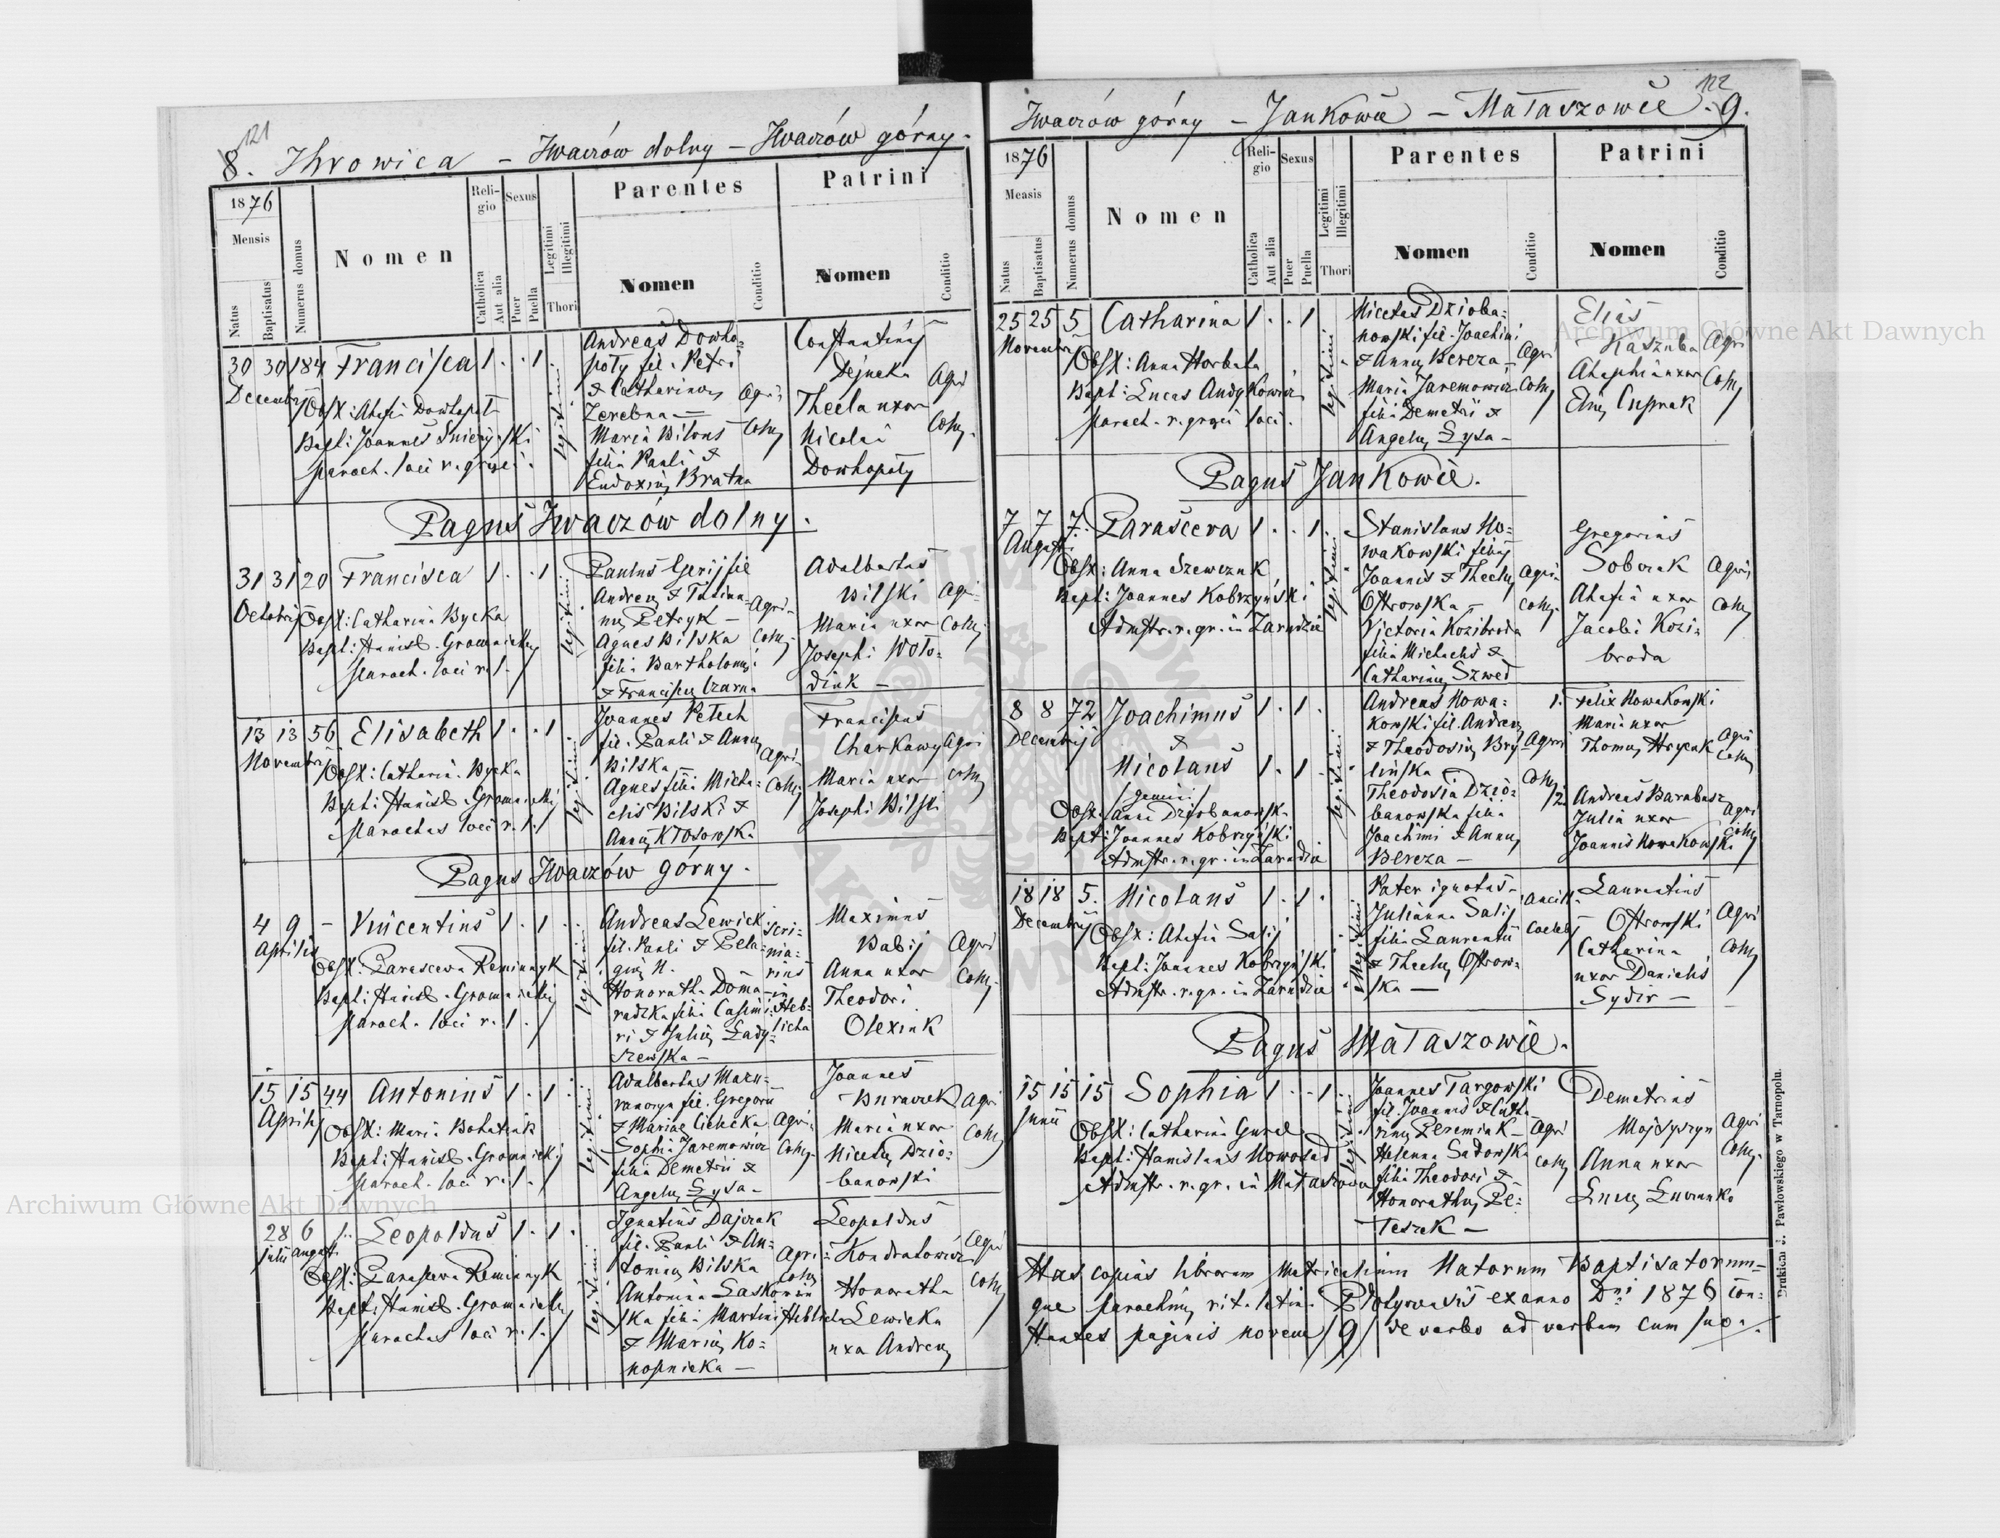 121
8. Ihrowica - Iwaczów dolny - Iwaczów górny.
1876
Mensis
Natus
Baptisatus
Numerus domus
Nomen
Religio
Catholica
Aut alia
Sexus
Puer
Puella
Legitimi
Illegitimi
Thori
Parentes
Nomen
Conditio
Patrini
Nomen
Conditio
30 30 184 Francisca 1 . . 1
Decembris
Obst: Ahafia Dowhopoł
Bapt: Joannes
paroch. loci r. graeci.
legitimi
Andreas Dowho-
poły fil. Petri
& Catharinae
Zerebna —
Maria Biłous
filia Pauli &
Eudoxiae Bratna
Agri
Colae
Constantinus
Dejneka
Thecla uxor
Nicolai
Dowhopoły
Agri
Colae.
Pagus Iwaczów dolny.
31 31 20 Francisca 1 . . 1
Octobris
Obst: Catharina Bycka
Bapt: Stanisl. Gromnicki
paroch. loci r. l.
legitimi
Paulus Gerij fil
Andreae & Tatia-
nae Petryk —
Agnes Bilska
filia Bartholomei
& Franciscae Czarna
Agri-
Colae
Adalbertus
Bilski
Maria uxor
Josephi Woło-
diuk —
Agri-
Colae
13 13 56 Elisabeth 1 . . 1
Novembris
Obst: Cathari. Bycka
Bapt: Stanisl. Gromnicki
Parochus loci r. l.
legitimi
Joannes Petech
fil. Pauli & Annae
Bilska
Agnes filia Micha-
elis Bilski &
Annae Kłosowska
Agri-
Colae
Franciscus
Charkawy
Maria uxor
Josephi Bilski
Agri
Colae
Pagus Iwaczów górny.
4 9 - Vincentius 1 . 1 .
Aprilis
Obst: Parasceva Reminnyk
Bapt: Stanisl. Gromnicki
Paroch. loci r. l.
legitimi
Andreas Lewicki
fil. Pauli & Pela-
giae N.
Honorata Doma-
radzka filia Casimi-
ri & Juliae Łady-
szewska —
scri-
nia-
rius
in Heb-
licha
Maximus
Babij
Anna uxor
Theodori
Olexiuk
Agri
Colae.
15 15 44 Antonius 1 . 1 .
Aprilis
Obst: Maria Bohatiuk
Bapt: Stanisl. Gromnicki
Paroch. loci r. l.
legitimi
fil. Gregorii
& Mariae Cichecka
Sophia Jaremowicz
filia Demetrii &
Angelae Łysa —
Agri-
Colae
Joannes
Buraczek
Maria uxor
Nicetae Dzio-
banowski
Agri
Colae
28 6 Leopoldus 1 . 1 .
julii augusti
Obst: Parasceva Reminnyk
Bapt: Stanisl. Gromnicki
Parochus loci r. l.
legitimi
Ignatius Dajczak
fil. Pauli & An-
toninae Bilska
Antonina Laskowin
ska filia Martini
& Mariae Ko-
nopnicka —
Agri-
Colae
Heblicha
Leopoldus
Kondratowicz
Honoratha
Lewicka
uxa Andreae
Agri
Colae
122
Iwaczów górny - Jankowce - Mataszowce. 9.
1876
Mensis
Natus
Baptisatus
Numerus domus
Nomen
Religio
Catholica
Aut alia
Sexus
Puer
Puella
Legitimi
Illegitimi
Thori
Parentes
Nomen
Conditio
Patrini
Nomen
Conditio
25 25 5 Catharina 1 . . 1
Novembris
Obst: Anna Horbata
Bapt: Lucas Andykowicz
paroch. r. graeci loci.
legitimi
Nicetas Dzioba-
nowski fil. Joachimi
& Annae Bereza —
Maria Jaremowicz
filia Demetrii &
Angelae Łysa —
Agri
Colae
Elias
Kasznba
Ahaphia uxor
Eliae Cuprak
Agri
Colae
Pagus Jankowce.
7 7 7. Parasceva 1 . . 1
Augusti
Obst: Anna Szewczuk
Bapt: Joannes Kobrzyński
Admstr. r. gr. in Zarudzie
legitimi
Stanislaus No-
wakowski filius
Joannis & Theclae
Ostrowska —
Victoria Kozibroda
filia Michaelis &
Catharinae Szwed
Agri-
Colae
Gregorius
Sobczak
Ahafia uxor
Jacobi Kozi-
broda
Agri
Colae
8 8 72 Joachimus 1 . 1 .
Decembris
&
Nicolaus 1 . 1
/gemini/
Obst: Anna Dziobanowska
Bapt: Joannes Kobrzyński
Admstr. r. gr. in Zarudzie
legitimi
Andreas Nowa-
kowski fil. Andreae
& Theodosiae Bry-
lińska
Theodosia Dzio-
banowska filia
Joachimi & Annae
Bereza —
Agri
Colae
1. Felix Nowakowski
Maria uxor
Thomae Hrycak
Agri
Colae
2. Andreas Barabasz
Julia uxor
Joannis Nowakowski
Agri
Colae
18 18 5. Nicolaus 1 . 1 .
Decembris
Obst: Ahafia Salij
Bapt: Joannes Kobrzyński.
Admstr. r. gr. in Zarudzie
illegitimi
Pater ignotus —
Julianna Salij
filia Laurentii
& Theclae Ostrow-
ska —
ancill.
caelebs
Laurentius
Ostrowski
Catharina
uxor Danielis
Sydir —
Agri
Colae
Pagus Mataszowce.
15 15 15 Sophia 1 . . 1
Junii
Obst: Catharina Gurel
Bapt: Stanislaus Nowosad
Admstr. r. gr. in Mataszowce
legitimi
Joannes Targowski
fil. Joannis & Catha-
rinae Jeremiak —
Helenna Sadowska
filia Theodori &
Honorathae Pe-
teszek —
Agri
Colae
Demetrius
Mojsyszyn
Anna uxor
Lucae
Agri
Colae.
Has copias librorum Metricalium Natorum Baptisatorum-
que parochiae rit. latin. Płotycensis ex anno Dni 1876 con-
stantes paginis novem /9/ de verbo ad verbum cum suo
Drukiem J. Pawłowskiego w Tarnopolu.
Archiwum Główne Akt Dawnych
Archiwum Główne Akt Dawnych